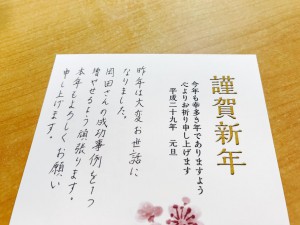 謹賀新年
今年も幸多き年でありますよう
心よりお祈り申し上げます
平成二十九年 元旦
昨年は大変お世話に
なりました。
岡田さんの成功事例を1つ
増やせるよう頑張ります。
本年もよろしくお願い
申し上げます。